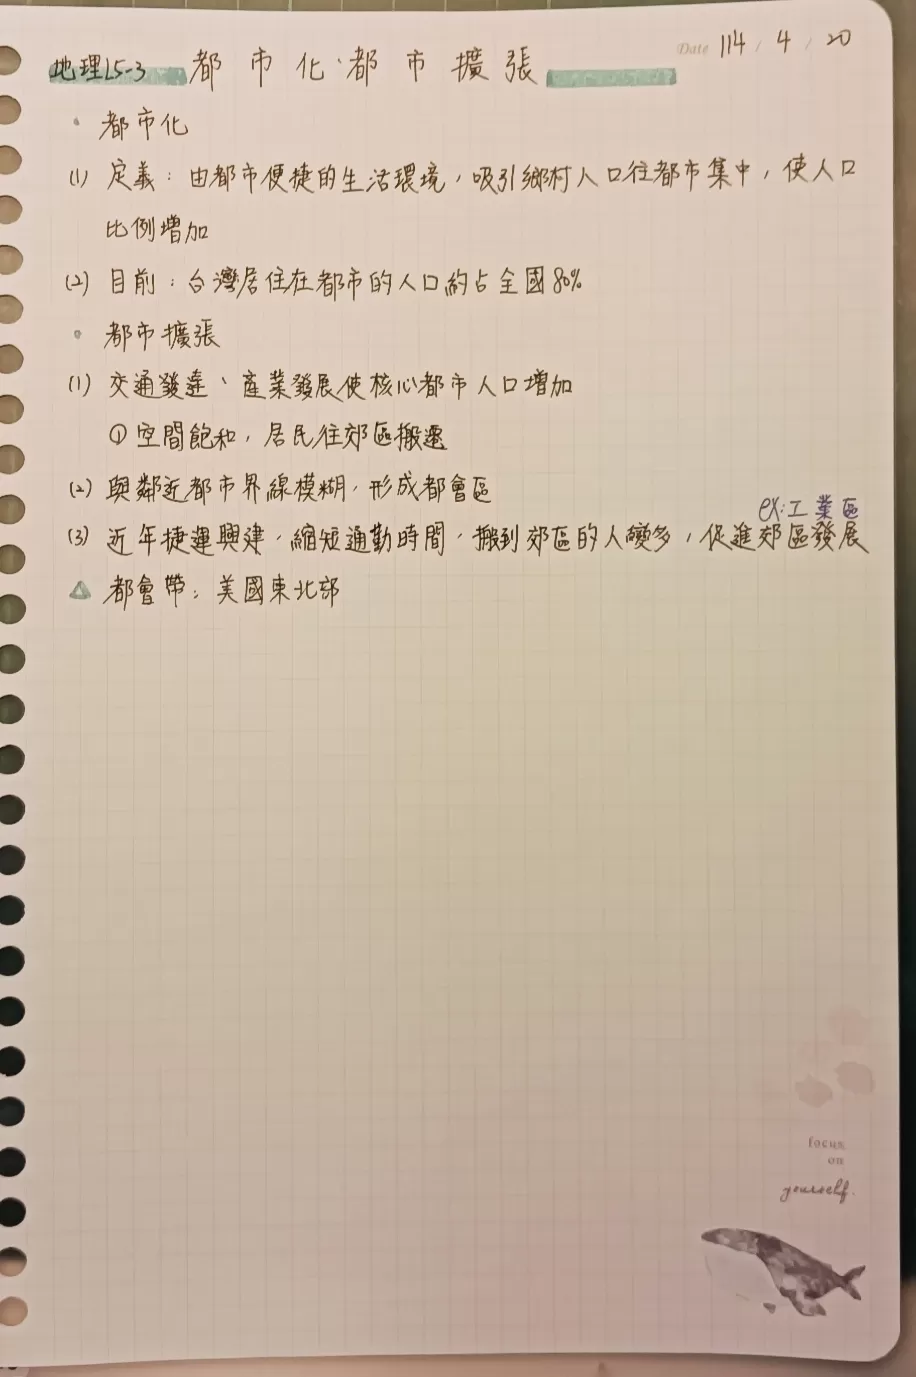 Date 114 / 4 / 20
地理L5-3 都市化、都市擴張
• 都市化
(1) 定義：由都市便捷的生活環境，吸引鄉村人口往都市集中，使人口
比例增加
(2) 目前：台灣居住在都市的人口約占全國80%
• 都市擴張
(1) 交通發達、產業發展使核心都市人口增加
① 空間飽和，居民往郊區搬遷
(2) 與鄰近都市界線模糊，形成都會區
ex:工業區
(3) 近年捷運興建，縮短通勤時間，搬到郊區的人變多，促進郊區發展
△ 都會帶：美國東北部
focus
on
yourself.